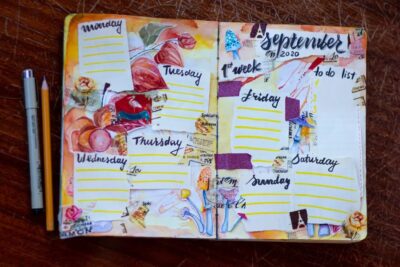 Monday
Tuesday
Thursday
Wednesday
September
2020
1st week
to do list
Friday
Saturday
Sunday